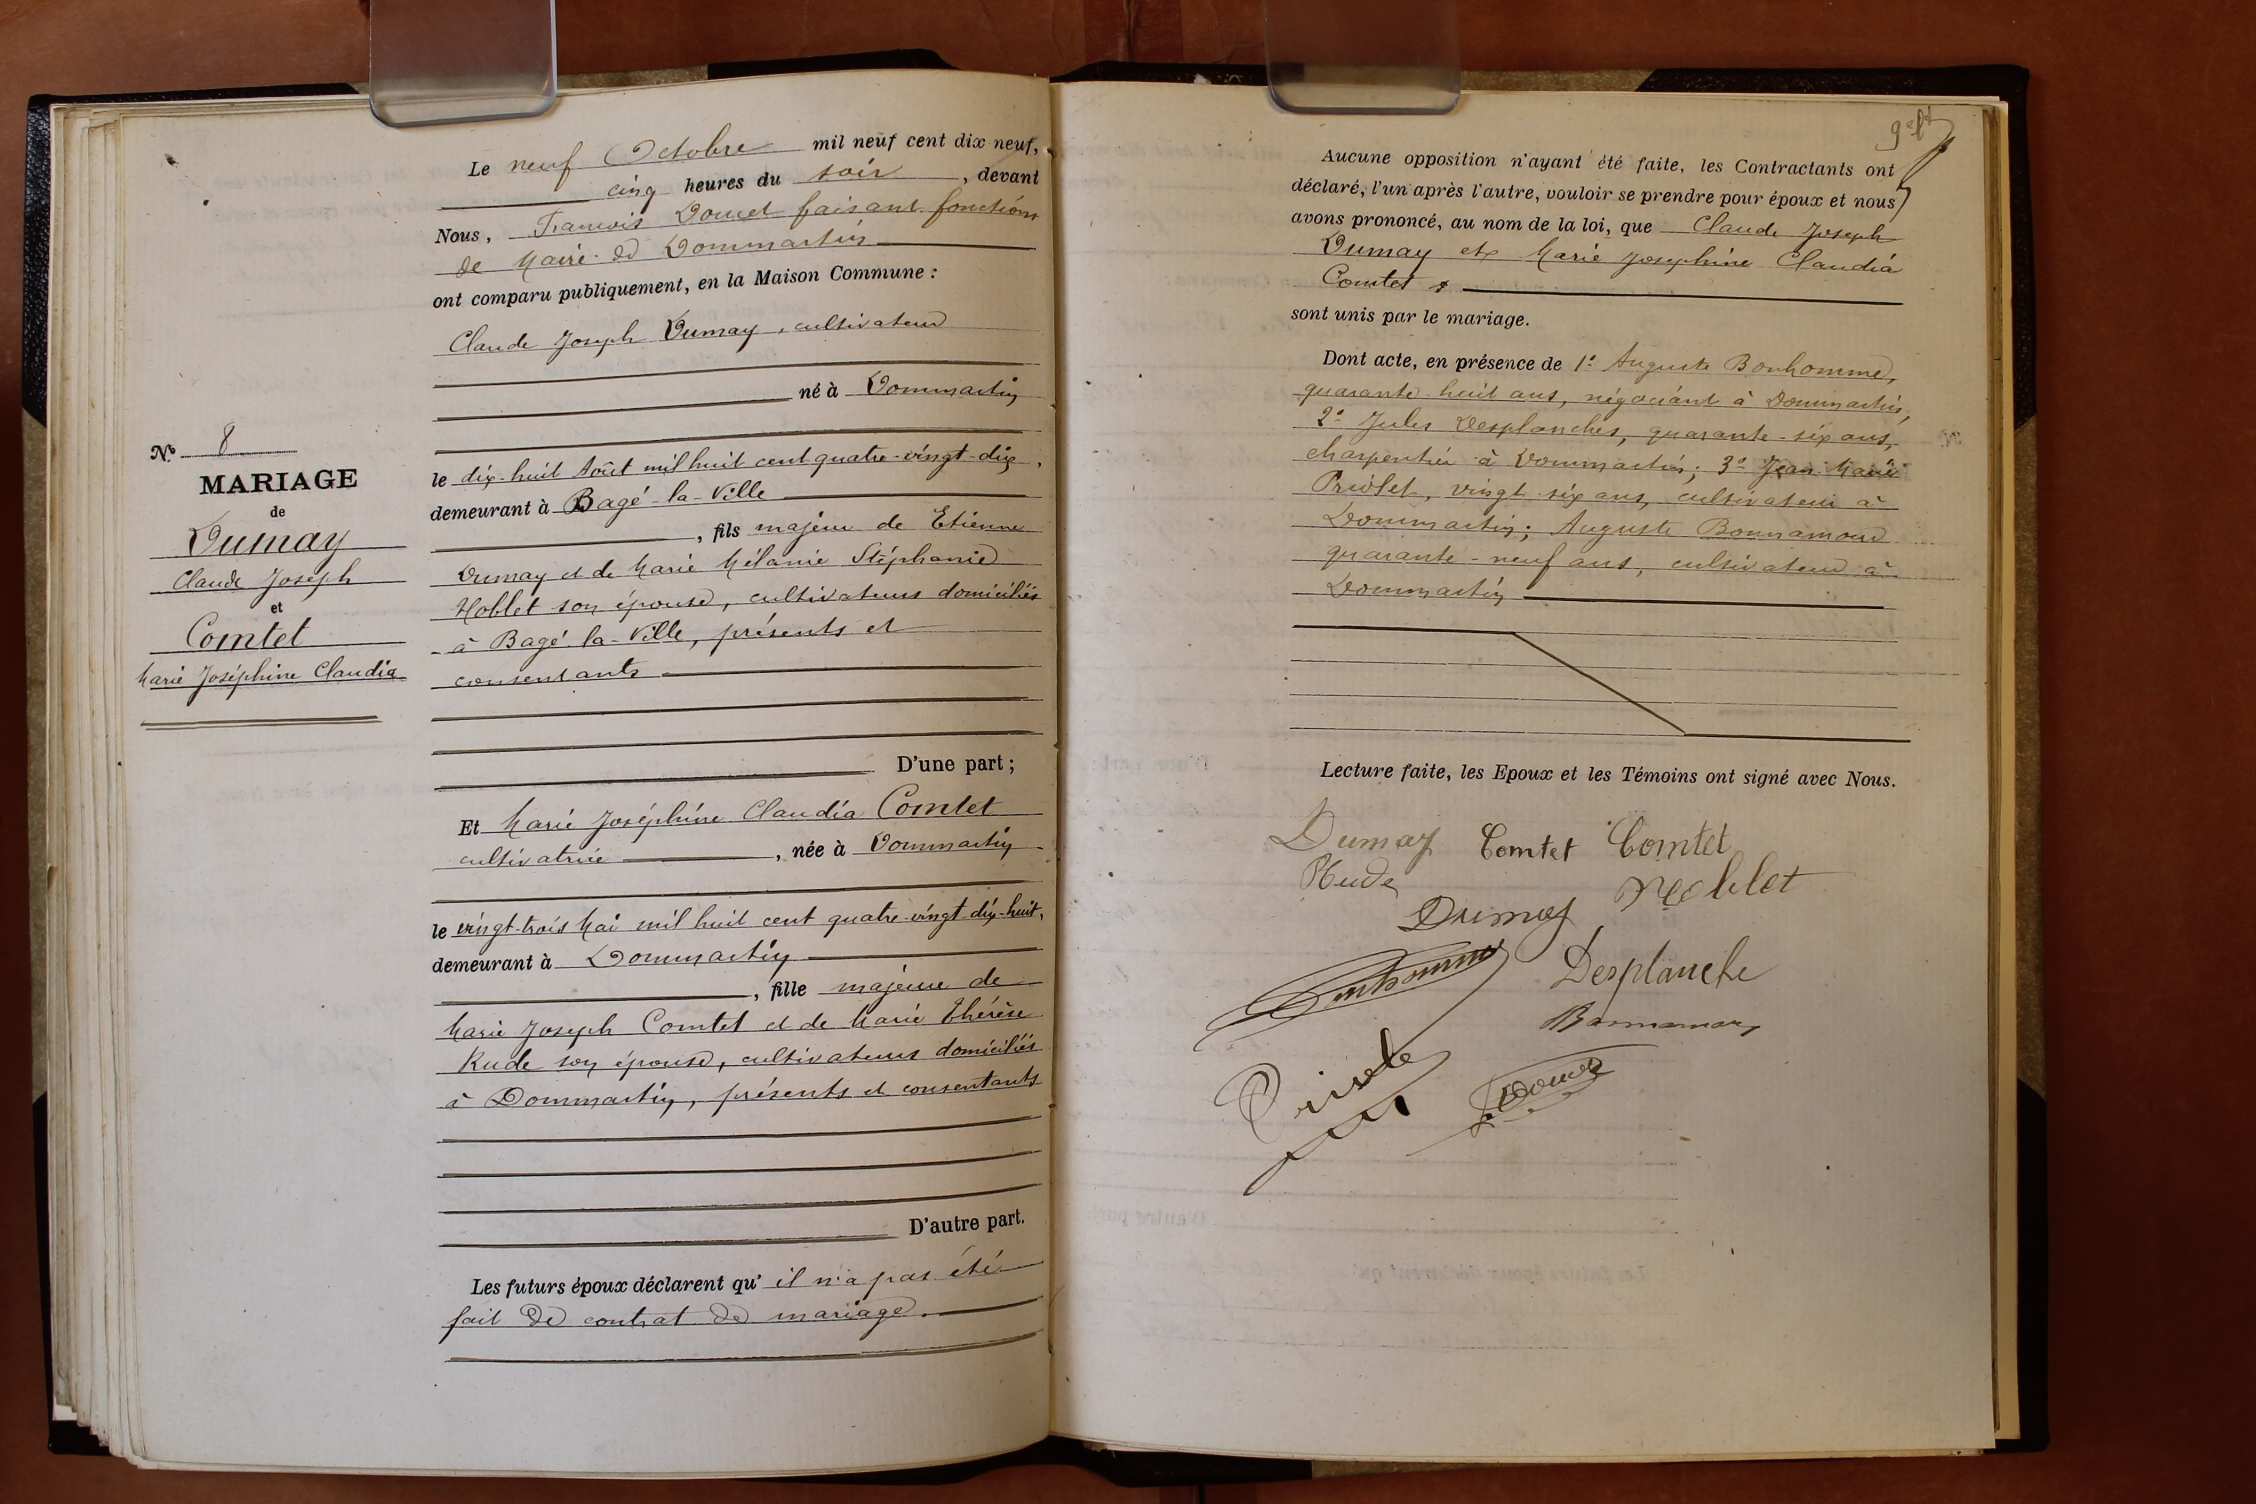 Le neuf Octobre mil neuf cent dix neuf,
cinq heures du soir, devant
Nous, François Doucet faisant fonctions
de Maire de Dommartin
ont comparu publiquement, en la Maison Commune :
Claude Joseph Dumay, cultivateur
né à Dommartin
le dix-huit Août mil huit cent quatre-vingt-dix,
demeurant à Bagé-la-Ville
, fils majeur de Etienne
Dumay et de Marie Mélanie Stéphanie
Noblet son épouse, cultivateurs domiciliés
à Bagé-la-Ville, présents et
consentants
D'une part ;
Et Marie Joséphine Claudia Comtet
cultivatrice, née à Dommartin
le vingt-trois Mai mil huit cent quatre-vingt-dix-huit,
demeurant à Dommartin
, fille majeure de
Marie Joseph Comtet et de Marie Thérèse
Rude son épouse, cultivateurs domiciliés
à Dommartin, présents et consentants
D'autre part.
Les futurs époux déclarent qu'il n'a pas été
fait de contrat de mariage.
N° 8
MARIAGE
de
Dumay
Claude Joseph
et
Comtet
Marie Joséphine Claudia
Aucune opposition n'ayant été faite, les Contractants ont
déclaré, l'un après l'autre, vouloir se prendre pour époux et nous
avons prononcé, au nom de la loi, que Claude Joseph
Dumay et Marie Joséphine Claudia
Comtet
sont unis par le mariage.
Dont acte, en présence de 1° Auguste Bonhomme,
quarante huit ans, négociant à Dommartin,
2° Jules Desplanches, quarante-six ans,
charpentier à Dommartin ; 3° Jean Marie
Priolet, vingt six ans, cultivateur à
Dommartin ; Auguste Bonnamour
quarante-neuf ans, cultivateur à
Dommartin
Lecture faite, les Epoux et les Témoins ont signé avec Nous.
Dumay Comtet Comtet
Rude
Dumay Noblet
Bonhomme
Desplanche
Bonnamour